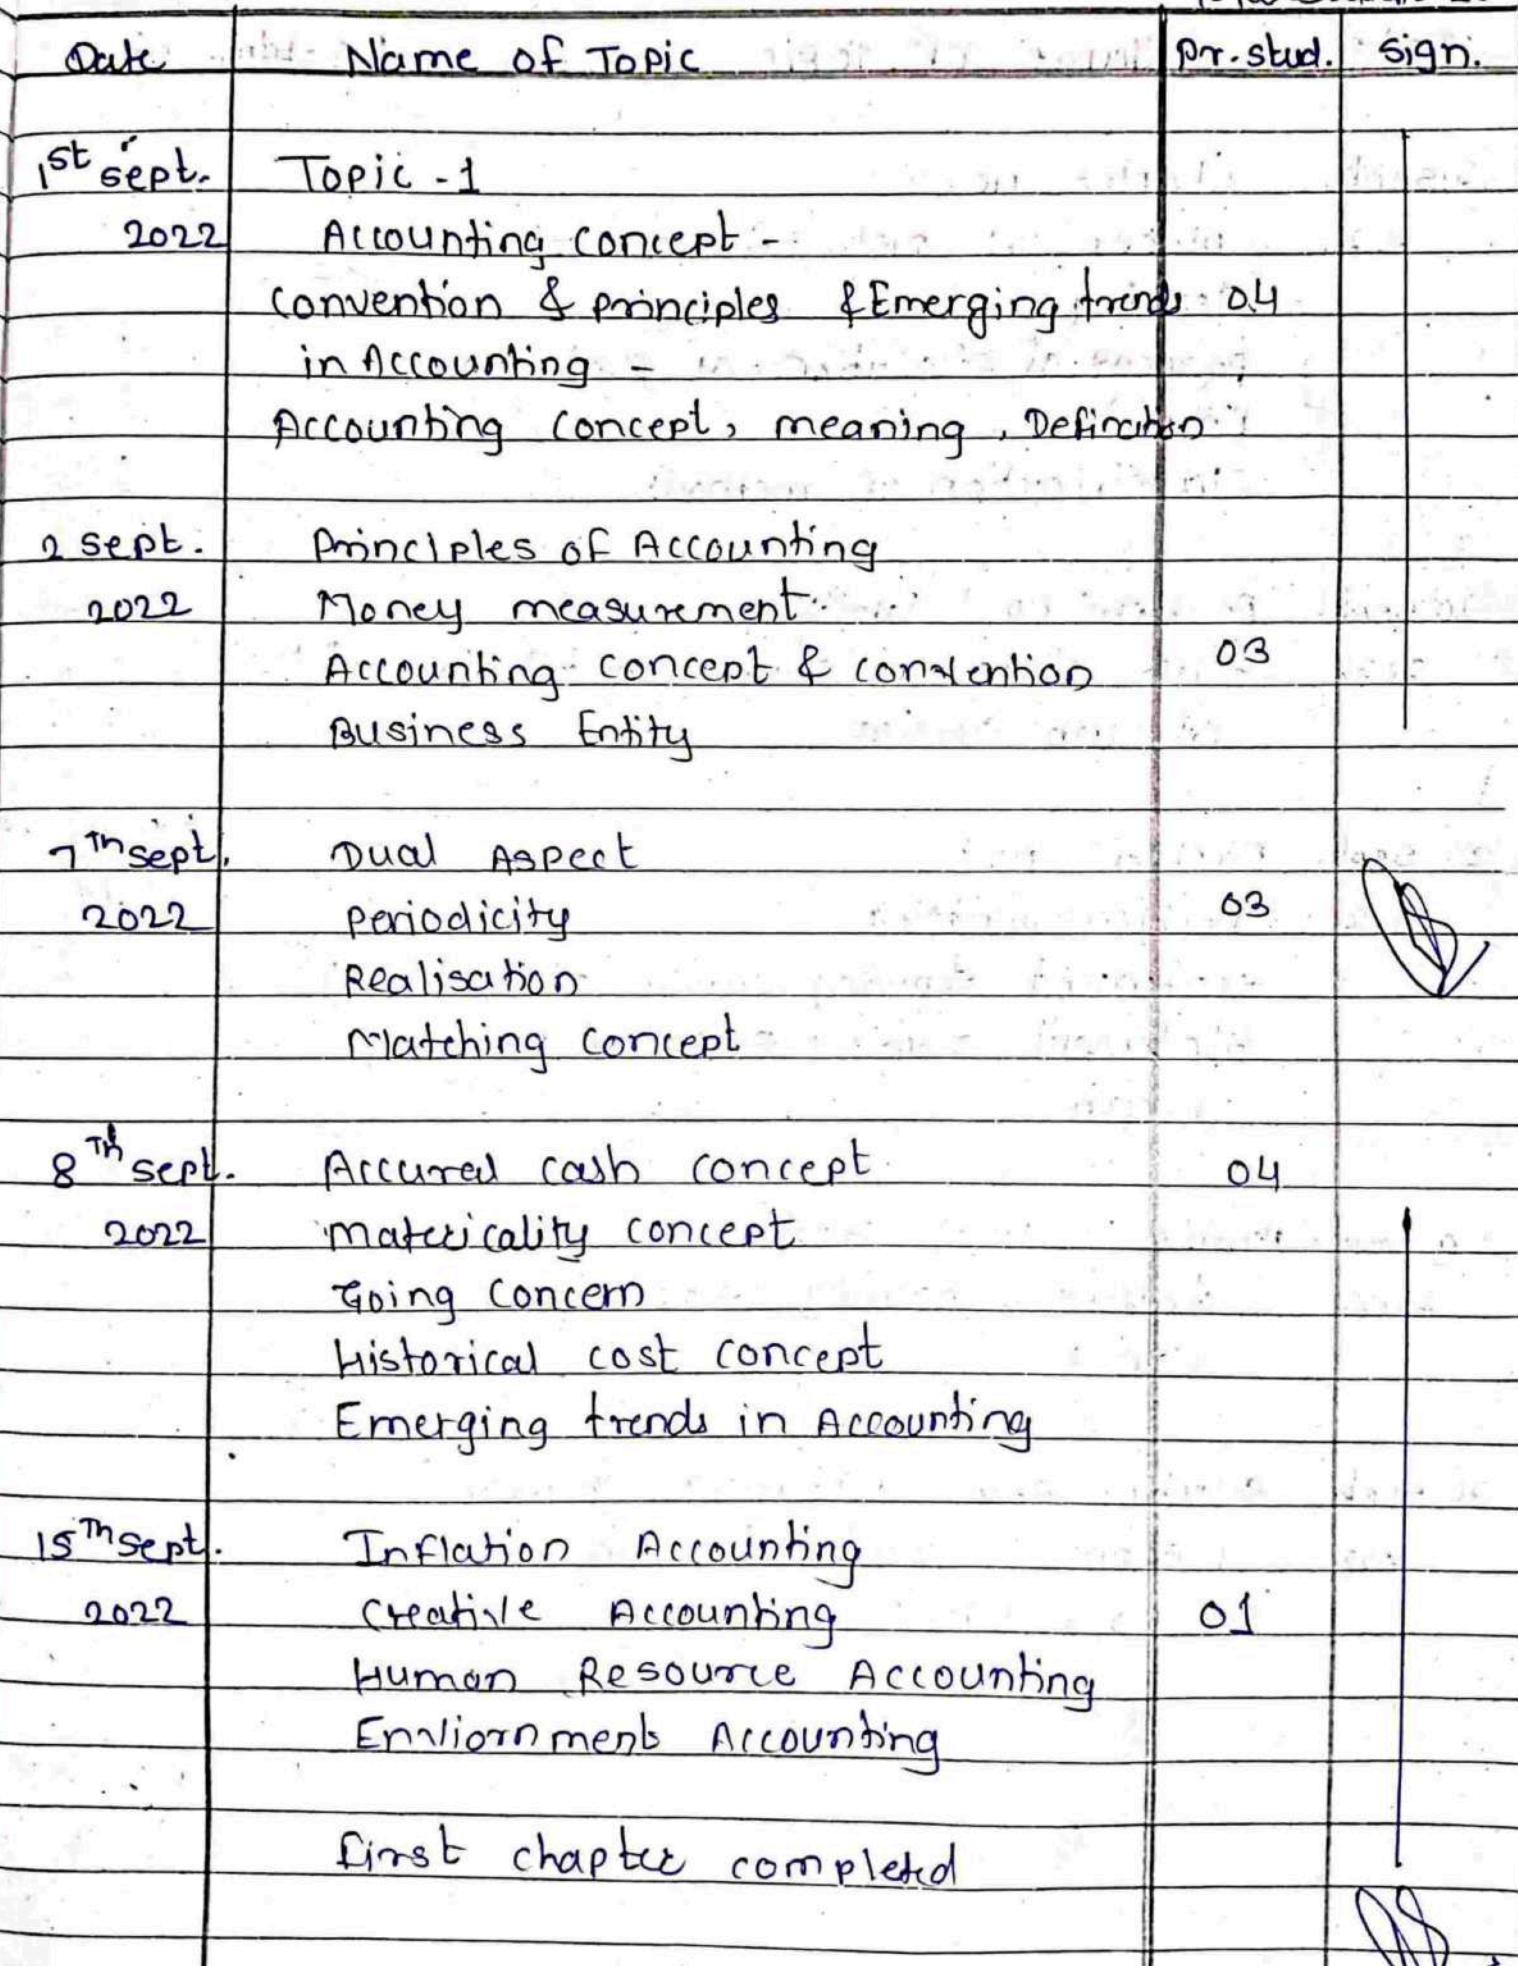 Date Name of Topic Pr.stud. Sign.
1st sept. Topic - 1
2022 Accounting concept -
convention & principles & Emerging trends 04
in Accounting -
Accounting concept, meaning, Defination
2 sept. Principles of Accounting
2022 Money measurement
Accounting concept & convention 03
Business Entity
7Th sept. Dual Aspect
2022 Periodicity 03
Realisation
Matching concept
8Th sept. Accured cash concept 04
2022 Matericality concept
Going Concern
Historical cost concept
Emerging trends in Accounting
15Th sept. Inflation Accounting
2022 Creative Accounting 01
Human Resource Accounting
Enviornment Accounting
First chapter completed